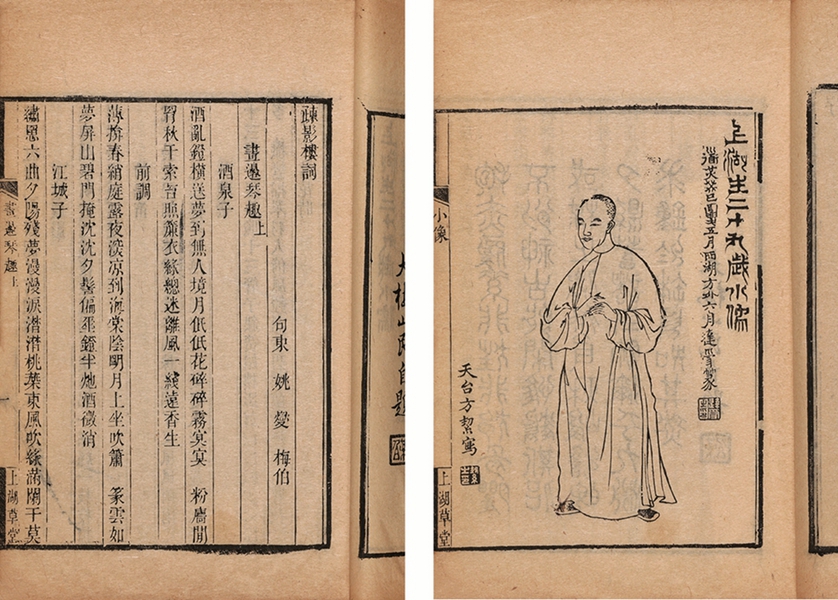 疎影樓詞
畫邊琴趣上
句東 姚燮 梅伯
酒泉子
酒亂鐙橫送夢到無人境月低低花碎碎霧寞寞 粉廧閒
秋千索苔照簾衣綠總迷離風一綫遠香生
前調
薄揜春綃庭露夜涼到海棠陰朙月上坐吹簫 篆雲如
夢屏山碧門掩沈沈夕鬢偏鐙半灺酒微消
江城子
繡六曲夕陽殘夢漫漫淚潸潸桃葉東風吹綠滿闌干莫
畫邊琴趣上
上湖草堂
自題
上湖生二十九歲小像
癸巳五月西湖方外六月達受篆
天台方絜寫
小像
上湖草堂